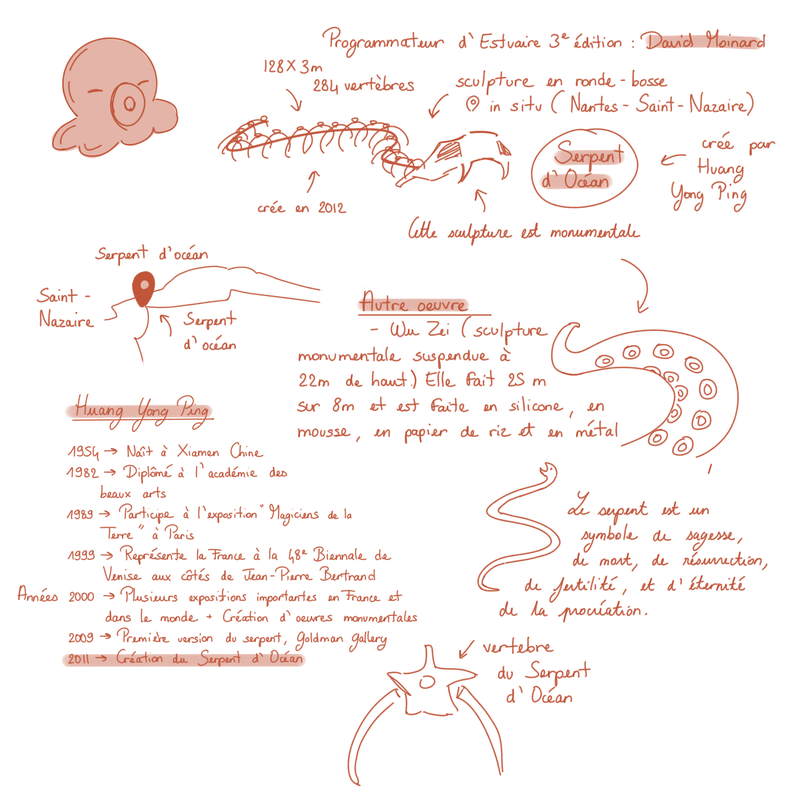 Programmateur d'Estuaire 3e édition : David Moinard
128 x 3m
284 vertèbres
sculpture en ronde-bosse
in situ ( Nantes - Saint-Nazaire)
Serpent
d'Océan
créé par
Huang
Yong Ping
crée en 2012
Cette sculpture est monumentale
Serpent d'océan
Saint -
Nazaire
Serpent
d'océan
Autre oeuvre
- Wu Zei ( sculpture
monumentale suspendue à
22m de haut.) Elle fait 25 m
sur 8m et est faite en silicone, en
mousse, en papier de riz et en métal
Huang Yong Ping
1954 → Naît à Xiamen Chine
1982 → Diplômé à l'académie des
beaux arts
1989 → Participe à l'exposition "Magiciens de la
Terre" à Paris
1999 → Représente la France à la 48e Biennale de
Venise aux côtés de Jean-Pierre Bertrand
Années 2000 → Plusieurs expositions importantes en France et
dans le monde + Création d'oeuvres monumentales
2009 → Première version du serpent, Goldman gallery
2011 → Création du Serpent d'Océan
Le serpent est un
symbole de sagesse,
de mort, de résurrection,
de fertilité, et d'éternité
de la procréation.
vertebre
du Serpent
d'Océan